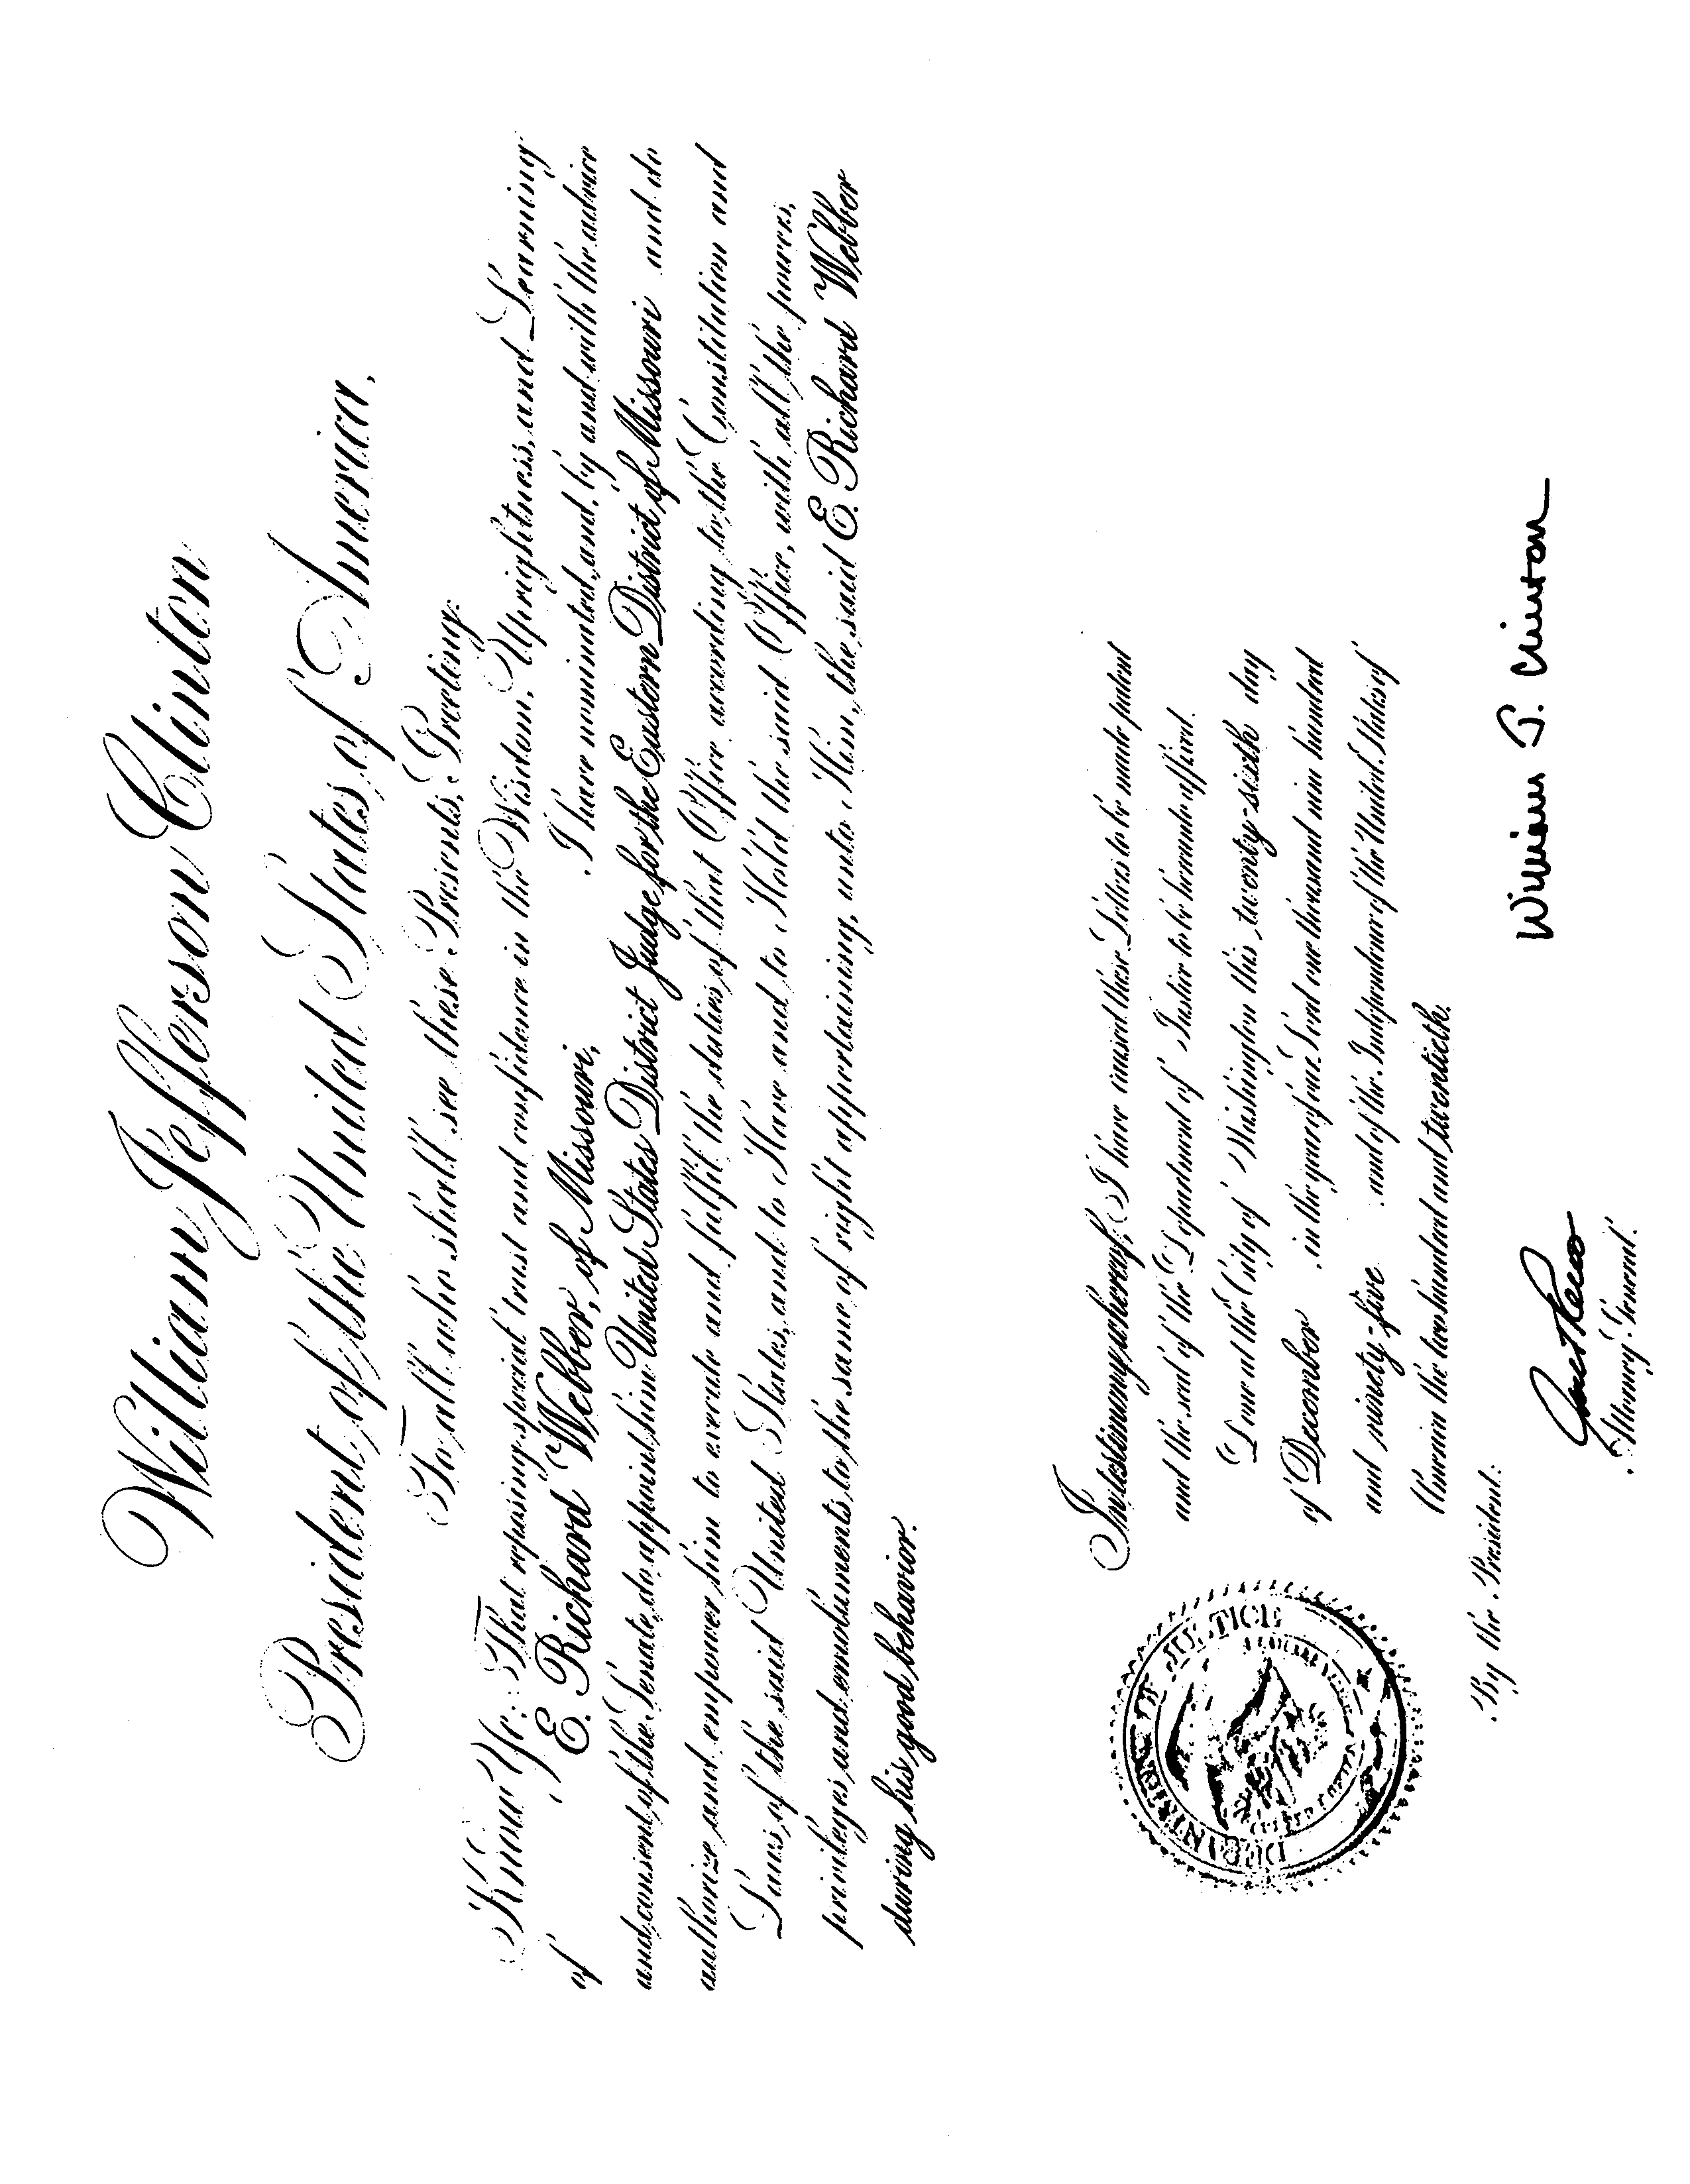 William Jefferson Clinton
President of the United States of America,
To all who shall see these Presents, Greeting:
Know Ye: That reposing special trust and confidence in the Wisdom, Uprightness, and Learning
of E. Richard Webber, of Missouri, I have nominated, and, by and with the advice
and consent of the Senate, do appoint him United States District Judge for the Eastern District of Missouri and do
authorize and empower him to execute and fulfil the duties of that Office according to the Constitution and
Laws of the said United States, and to Have and to Hold the said Office, with all the powers,
privileges and emoluments to the same of right appertaining, unto Him, the said E. Richard Webber
during his good behavior.
In testimony whereof, I have caused these Letters to be made patent
and the seal of the Department of Justice to be hereunto affixed.
Done at the City of Washington this twenty-sixth day
of December in the year of our Lord one thousand nine hundred
and ninety-five and of the Independence of the United States of
America the two hundred and twentieth.
DEPARTMENT OF JUSTICE
By the President:
William J. Clinton
Janet Reno
Attorney General.